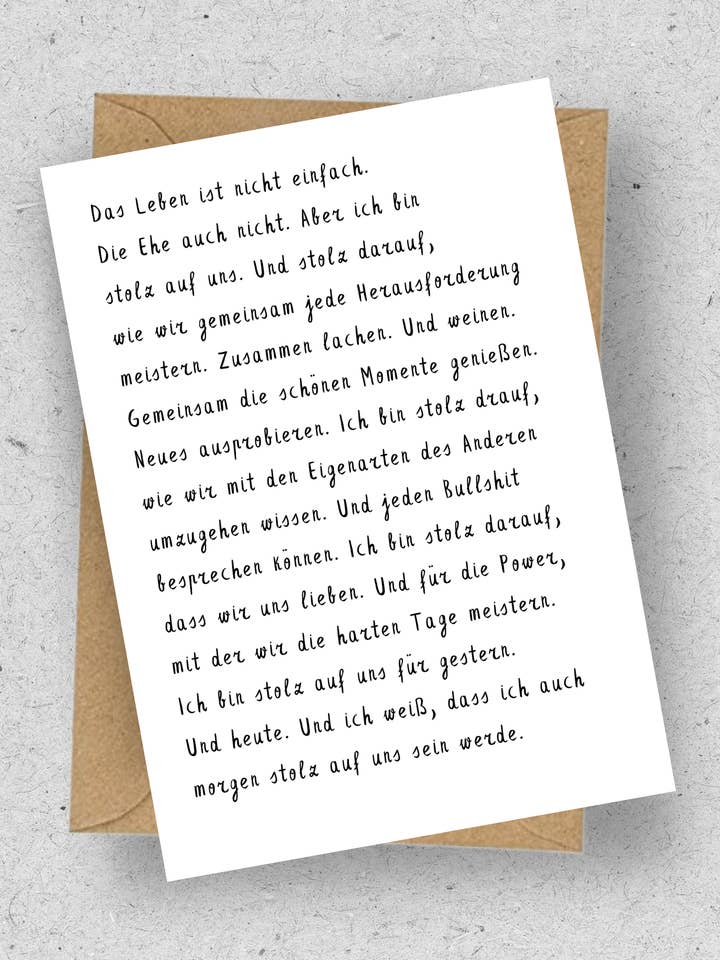 Das Leben ist nicht einfach.
Die Ehe auch nicht. Aber ich bin
stolz auf uns. Und stolz darauf,
wie wir gemeinsam jede Herausforderung
meistern. Zusammen lachen. Und weinen.
Gemeinsam die schönen Momente genießen.
Neues ausprobieren. Ich bin stolz drauf,
wie wir mit den Eigenarten des Anderen
umzugehen wissen. Und jeden Bullshit
besprechen können. Ich bin stolz darauf,
dass wir uns lieben. Und für die Power,
mit der wir die harten Tage meistern.
Ich bin stolz auf uns für gestern.
Und heute. Und ich weiß, dass ich auch
morgen stolz auf uns sein werde.